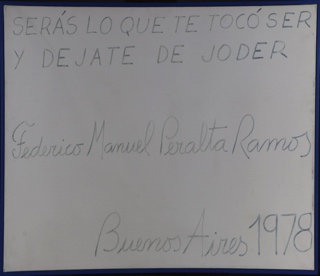 SERÁS LO QUE TE TOCÓ SER
Y DEJATE DE JODER
Federico Manuel Peralta Ramos
Buenos Aires 1978